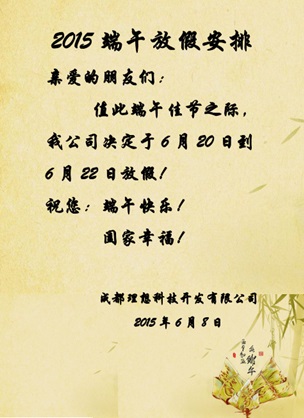 2015 端午放假安排
亲爱的朋友们：
值此端午佳节之际，
我公司决定于 6 月 20 日到
6 月 22 日放假！
祝您：端午快乐！
阖家幸福！
成都理想科技开发有限公司
2015 年 6 月 8 日
端午